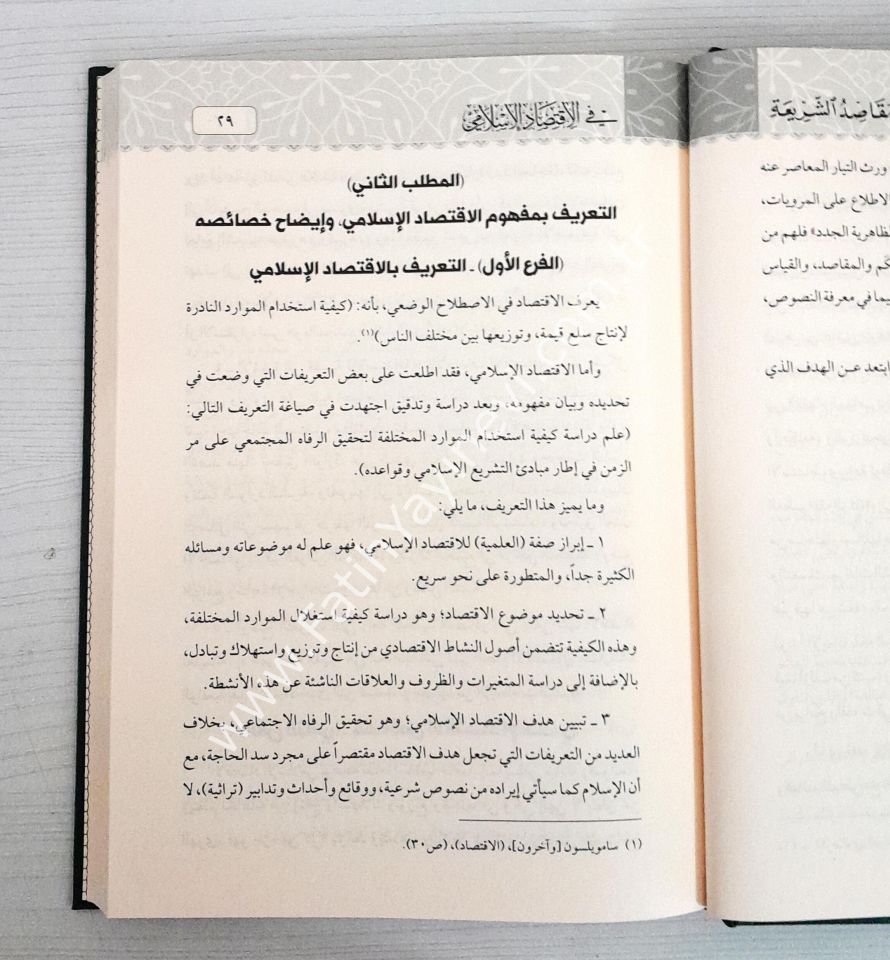 مقاصد الشريعة
ورث التيار المعاصر عنه
الاطلاع على المرويات،
الجدد» فلهم من
والمقاصد، والقياس
في معرفة النصوص،
ابتعد عن الهدف الذي
في الاقتصاد الإسلامي
٢٩
(المطلب الثاني)
التعريف بمفهوم الاقتصاد الإسلامي، وإيضاح خصائصه
(الفرع الأول) ـ التعريف بالاقتصاد الإسلامي
يعرف الاقتصاد في الاصطلاح الوضعي، بأنه: (كيفية استخدام الموارد النادرة
لإنتاج سلع قيمة، وتوزيعها بين مختلف الناس)(١).
وأما الاقتصاد الإسلامي، فقد اطلعت على بعض التعريفات التي وضعت في
تحديده وبيان مفهومه، وبعد دراسة وتدقيق اجتهدت في صياغة التعريف التالي:
(علم دراسة كيفية استخدام الموارد المختلفة لتحقيق الرفاه المجتمعي على مر
الزمن في إطار مبادئ التشريع الإسلامي وقواعده).
وما يميز هذا التعريف، ما يلي:
١ ـ إبراز صفة (العلمية) للاقتصاد الإسلامي، فهو علم له موضوعاته ومسائله
الكثيرة جداً، والمتطورة على نحو سريع.
٢ ـ تحديد موضوع الاقتصاد؛ وهو دراسة كيفية استغلال الموارد المختلفة،
وهذه الكيفية تتضمن أصول النشاط الاقتصادي من إنتاج وتوزيع واستهلاك وتبادل،
بالإضافة إلى دراسة المتغيرات والظروف والعلاقات الناشئة عن هذه الأنشطة.
٣ ـ تبيين هدف الاقتصاد الإسلامي؛ وهو تحقيق الرفاه الاجتماعي، بخلاف
العديد من التعريفات التي تجعل هدف الاقتصاد مقتصراً على مجرد سد الحاجة، مع
أن الإسلام كما سيأتي إيراده من نصوص شرعية، ووقائع وأحداث وتدابير (تراثية)، لا
(١) سامويلسون [وآخرون]، (الاقتصاد)، (ص٣٠).
www.fatihyayinevi.com.tr